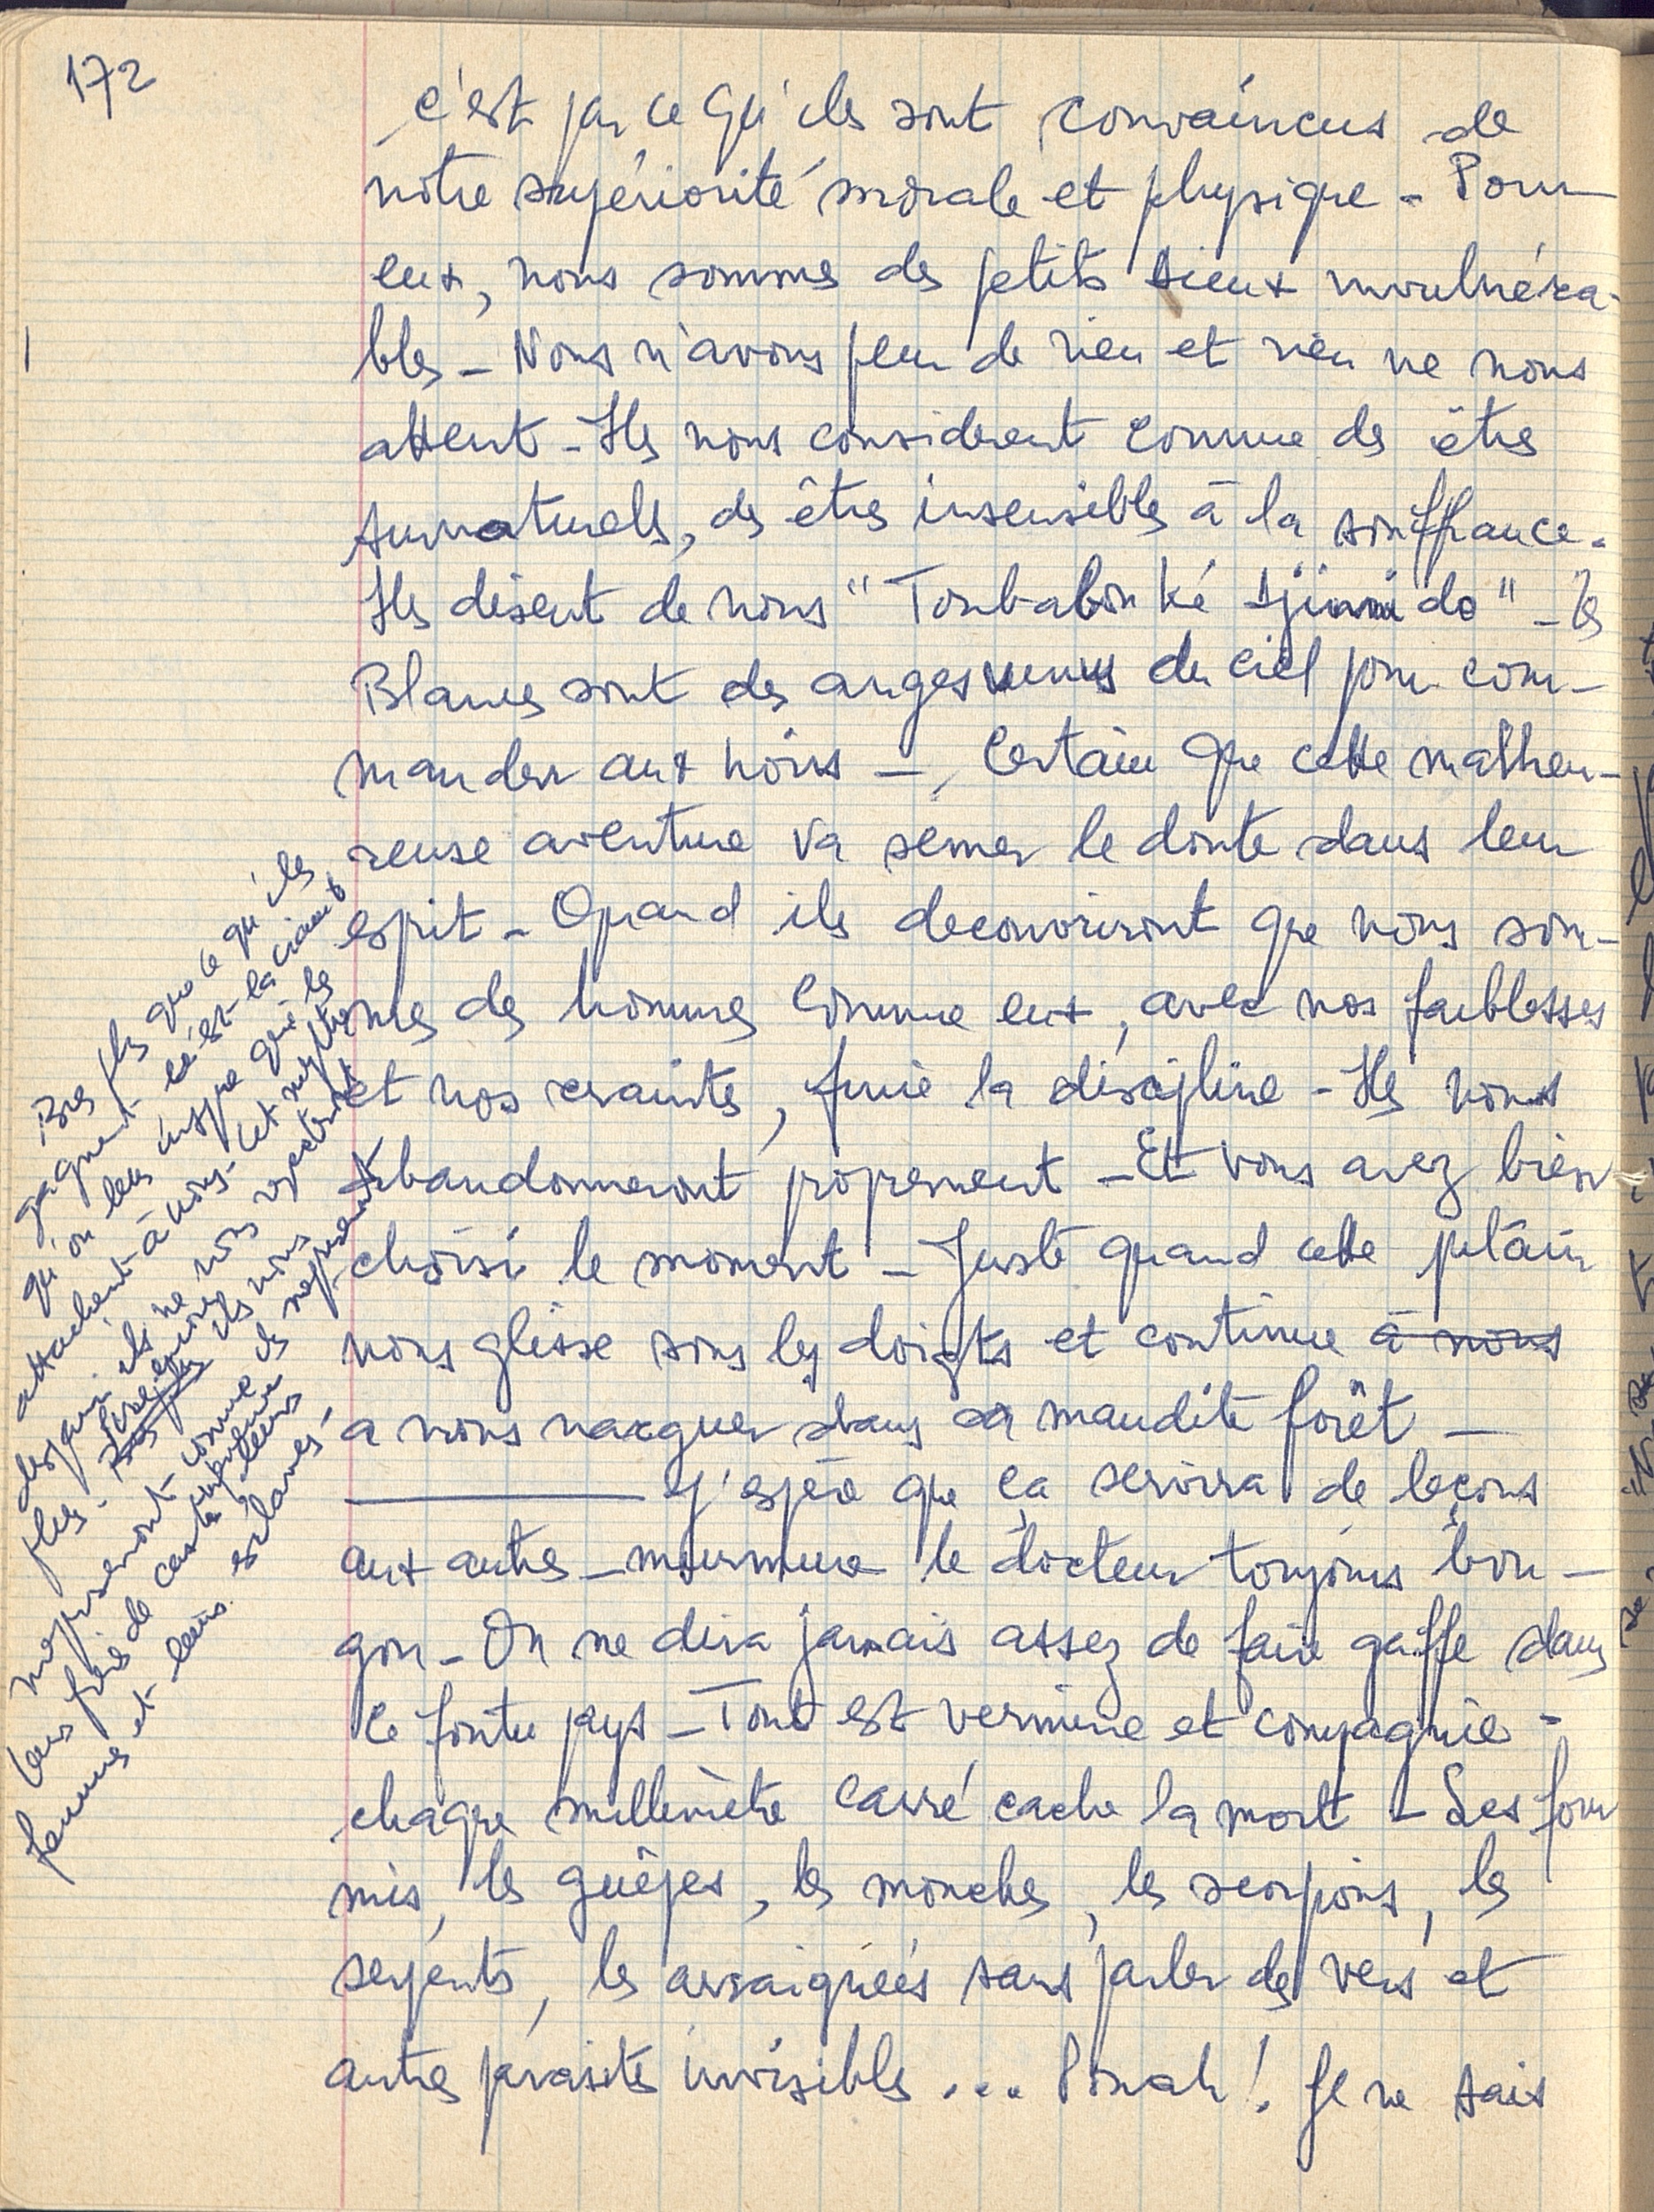 172
c'est parce qu'ils sont convaincus de
notre supériorité morale et physique - Pour
eux, nous sommes des petits dieux invulnéra-
bles - Nous n'avons peur de rien et rien ne nous
attent - Ils nous considerent comme des êtres
surnaturels, des êtres insensibles à la souffrance.
Ils disent de nous "Toubabou ké djinni do" - les
Blancs sont des anges venus du ciel pour com-
mander aux noirs - Certain que cette malheu-
reuse aventure va semer le doute dans leur
esprit - Quand ils decouvriront que nous som-
mes des hommes comme eux, avec nos faiblesses
et nos craintes, finie la discipline - Ils nous
abandonneront proprement - Et vous avez bien
choisi le moment - Juste quand cette putain
nous glisse sous les doigts et continue à nous
a nous narguer dans sa maudite forêt -
J'espère que ça servira de leçons
aux autres - murmure le docteur toujours bou-
gon - On ne dira jamais assez de faire gaffe dans
ce foutu pays - Tout est vermine et compagnie -
chaque millimètre carré cache la mort - Les four
mis, les guêpes, les mouches, les scorpions, les
serpents, les arraignées sans parler des vers et
autres parasites invisibles ... Pouah! Je ne sais
Bres plus que ce qu'ils
gagnent - c'est la crainte
qu'on leur inspire qui les
attachent à nous - Cet mythe
disparu ils ne nous respecteront
plus - ils nous
mepriseront comme ils meprisent
leur frère de caste inférieure
femmes et leurs esclaves